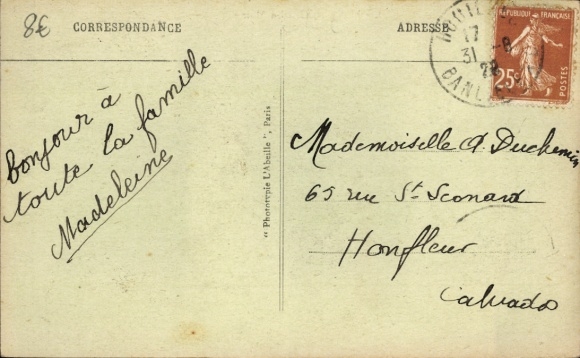 8€
CORRESPONDANCE
Bonjour à
toute la famille
Madeleine
"Phototypie L'Abeille", Paris
ADRESSE
17
31 -8
BANL
REPUBLIQUE FRANÇAISE
25c
POSTES
Mademoiselle A. Duchemin
65 rue St Leonard
Honfleur
Calvados